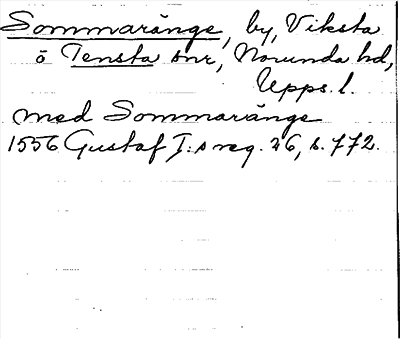 Sommaränge, by, Viksta
o Tensta snr, Norunda hd,
Upps. l.
med Sommaränge
1556 Gustaf I:s reg. 26, s. 772.